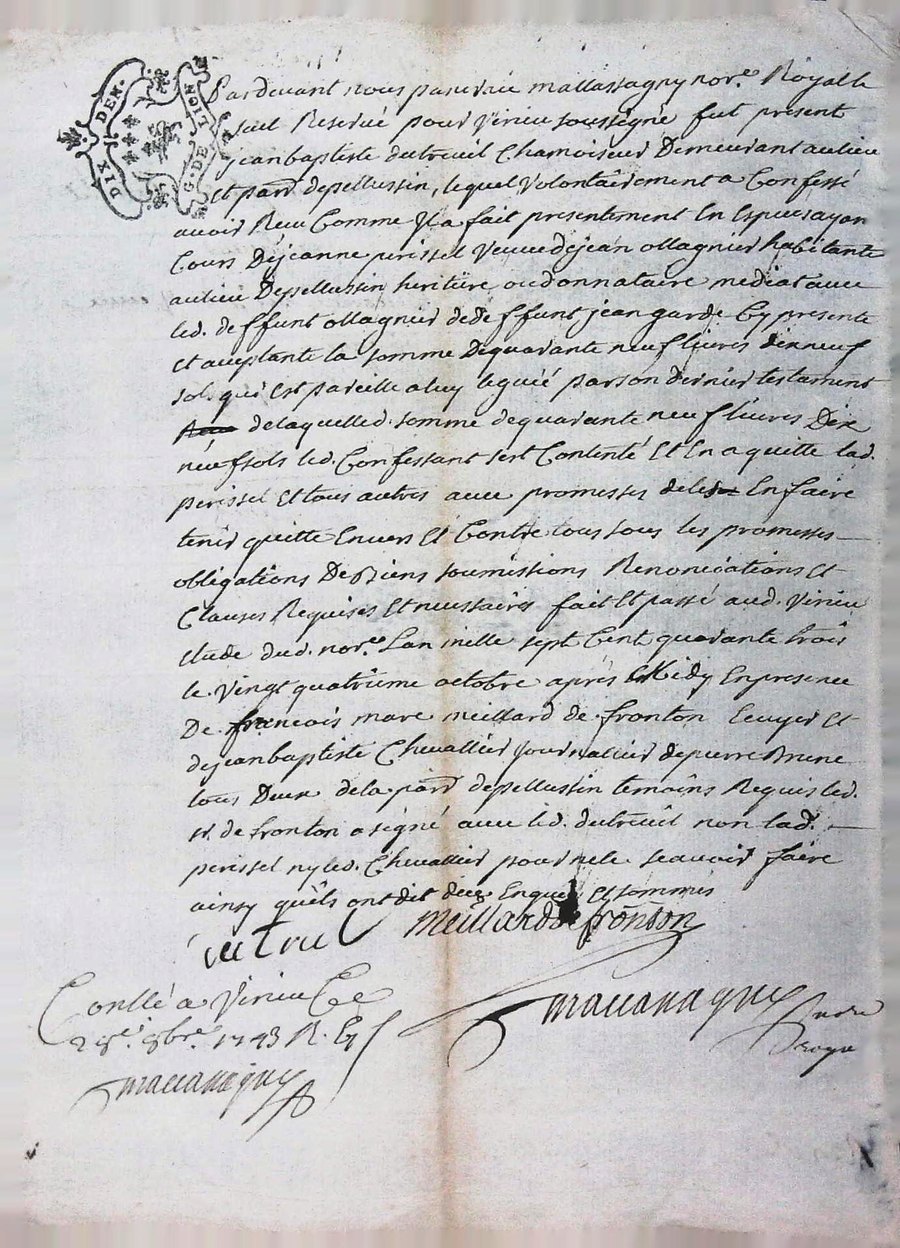 DIX DEN.
G. DE LION
Pardevant nous pancrace mattassagny nore. Royal
soul. Reservé pour virieu soussigné fut présent
jeanbaptiste dutreuil Chamoiseur Demeurant au lieu
Et parr. depellussin, lequel volontairement a Confessé
avoir Reçu Comme Il a fait presentement En Especes ayan
Cours Dejeanne perissel veuve dejean ollagnier habitante
au lieu Depellussin heritiere ou donnataire mediat avec
led. deffunt ollagnier dedeffunt jean garde Cy presente
Et aceptante la somme Dequarante neuf livres dixneuf
sols qui Est pareille a luy leguéé par son dernier testament
delaquelled. somme dequarante neuf livres Dix
neuf sols led. Confessant sest Contenté Et En a quitté lad.
perissel Et tous autres avec promesses de En faire
tenir quitte Envers Et Contre tous sous les promesses
obligations De Biens soumissions Renonciations Et
Clauses Requises Et necessaires fait Et passé aud. virieu
Etude dud. nore. Lan mille sept Cent quarante trois
le vingt quatrieme octobre après Midy En presence
De francois marc meillard de fronton Ecuyer Et
dejeanbaptiste Chevallier journallier depierre Brune
tous Deux de la parr. depellussin temoins Requis led.
sr. de fronton a signé avec led. dutreuil non lad.
perissel ny led. Chevallier pour ne le scavoir faire
ainsy qu'ils ont dit de ce Enquis Et sommés
dutreul Meillard de fronton
Conllé a Virieu Ce
24e. 8bre. 1743 R.